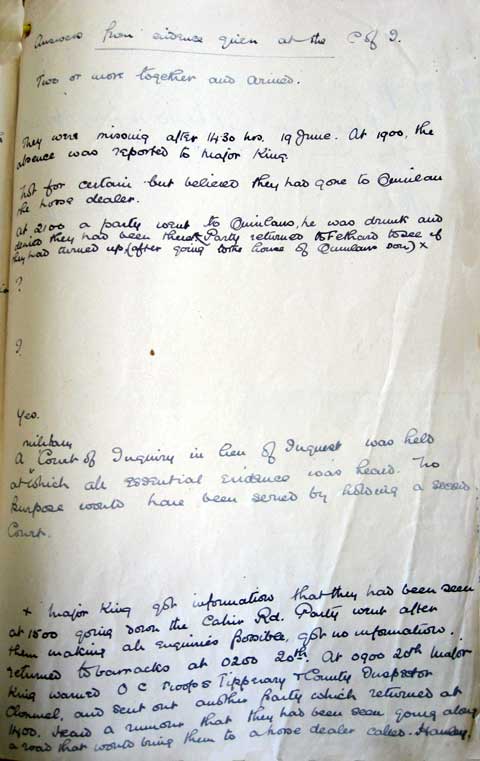 Answers from evidence given at the C of I.
Two or more together and armed.
They were missing after 1430 hrs, 19 June. At 1900, the
absence was reported to Major King.
Not for certain but believed they had gone to Quinlan
the horse dealer.
At 2100 a party went to Quinlans, he was drunk and
denied they had been there. Party returned to Fethard to see if
they had turned up (after going to the house of Quinlans son) x
?
?
Yes.
military
A Court of Inquiry in lieu of Inquest was held
at which all essential evidence was heard. No
purpose would have been served by holding a second
Court.
x Major King got information that they had been seen
at 1500 going down the Cabin Rd. Party went after
them making all enquiries possible, got no information.
returned to barracks at 0200 20th. At 0900 20th Major
King warned O C Troops Tipperary & County Inspector
Clonmel, and sent out another party which returned at
1400. Heard a rumour that they had been seen going along
a road that would bring them to a horse dealer called